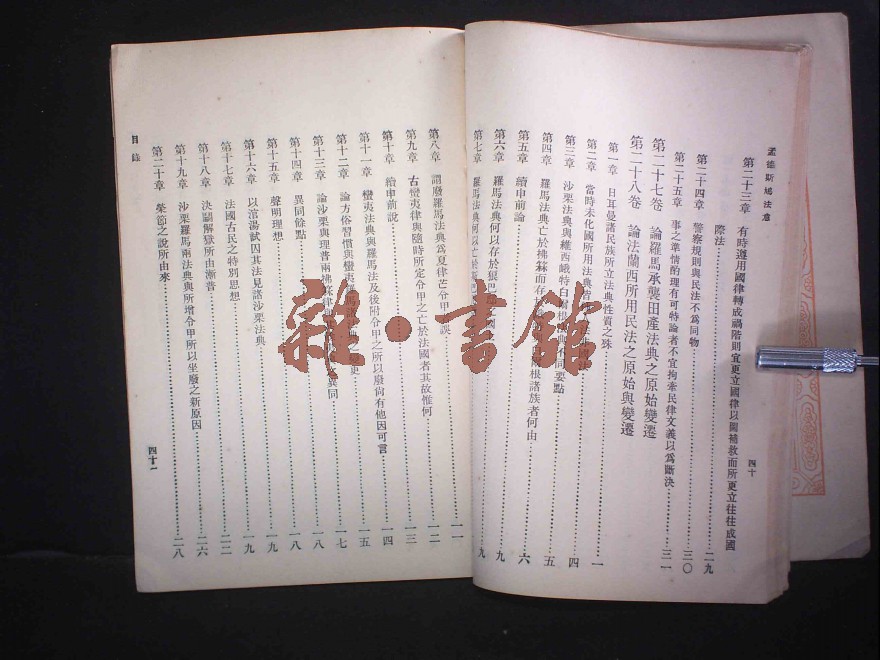 孟德斯鳩法意
四十
第二十三章 有時遵用國律轉成禍階則宜更立國律以圖補救而所更立往往成國
際法 二九
第二十四章 警察規則與民法不爲同物 三〇
第二十五章 事之準情酌理有可特論者不宜拘牽民律文義以爲斷決 三一
第二十七卷 論羅馬承襲田產法典之原始變遷
第二十八卷 論法蘭西所用民法之原始與變遷
第一章 日耳曼諸民族所立法典性質之殊 一
第二章 當時未化國所用法典皆 四
第三章 沙栗法典與維西峨特白爾根 典不同要點 五
第四章 羅馬法典亡於拂箖而存 根諸族者何由
第五章 續申前論 六
第六章 羅馬法典何以存於狼巴 之國 九
第七章 羅馬法典何以亡於 九
第八章 謂廢羅馬法典爲夏律芒分甲 誤 一一
第九章 古蠻夷律與隨時所定令甲之亡於法國者其故惟何 一二
第十章 續申前說 一三
第十一章 蠻夷法典與羅馬法及後附令甲之所以廢尚有他因可言 一四
第十二章 論方俗習慣與蠻夷羅馬 典之 更 一五
第十三章 論沙栗與理普兩拂箖律與 異同 一七
第十四章 異同餘點 一八
第十五章 聲明理想 一八
第十六章 以涫湯試囚其法見諸沙栗法典 一九
第十七章 法國古民之特別思想 二二
第十八章 決鬭解獄所由漸普 二六
第十九章 沙栗羅馬兩法典與所增令甲所以坐廢之新原因 二八
第二十章 榮節之說所由來
目錄
四十一
雜·書館